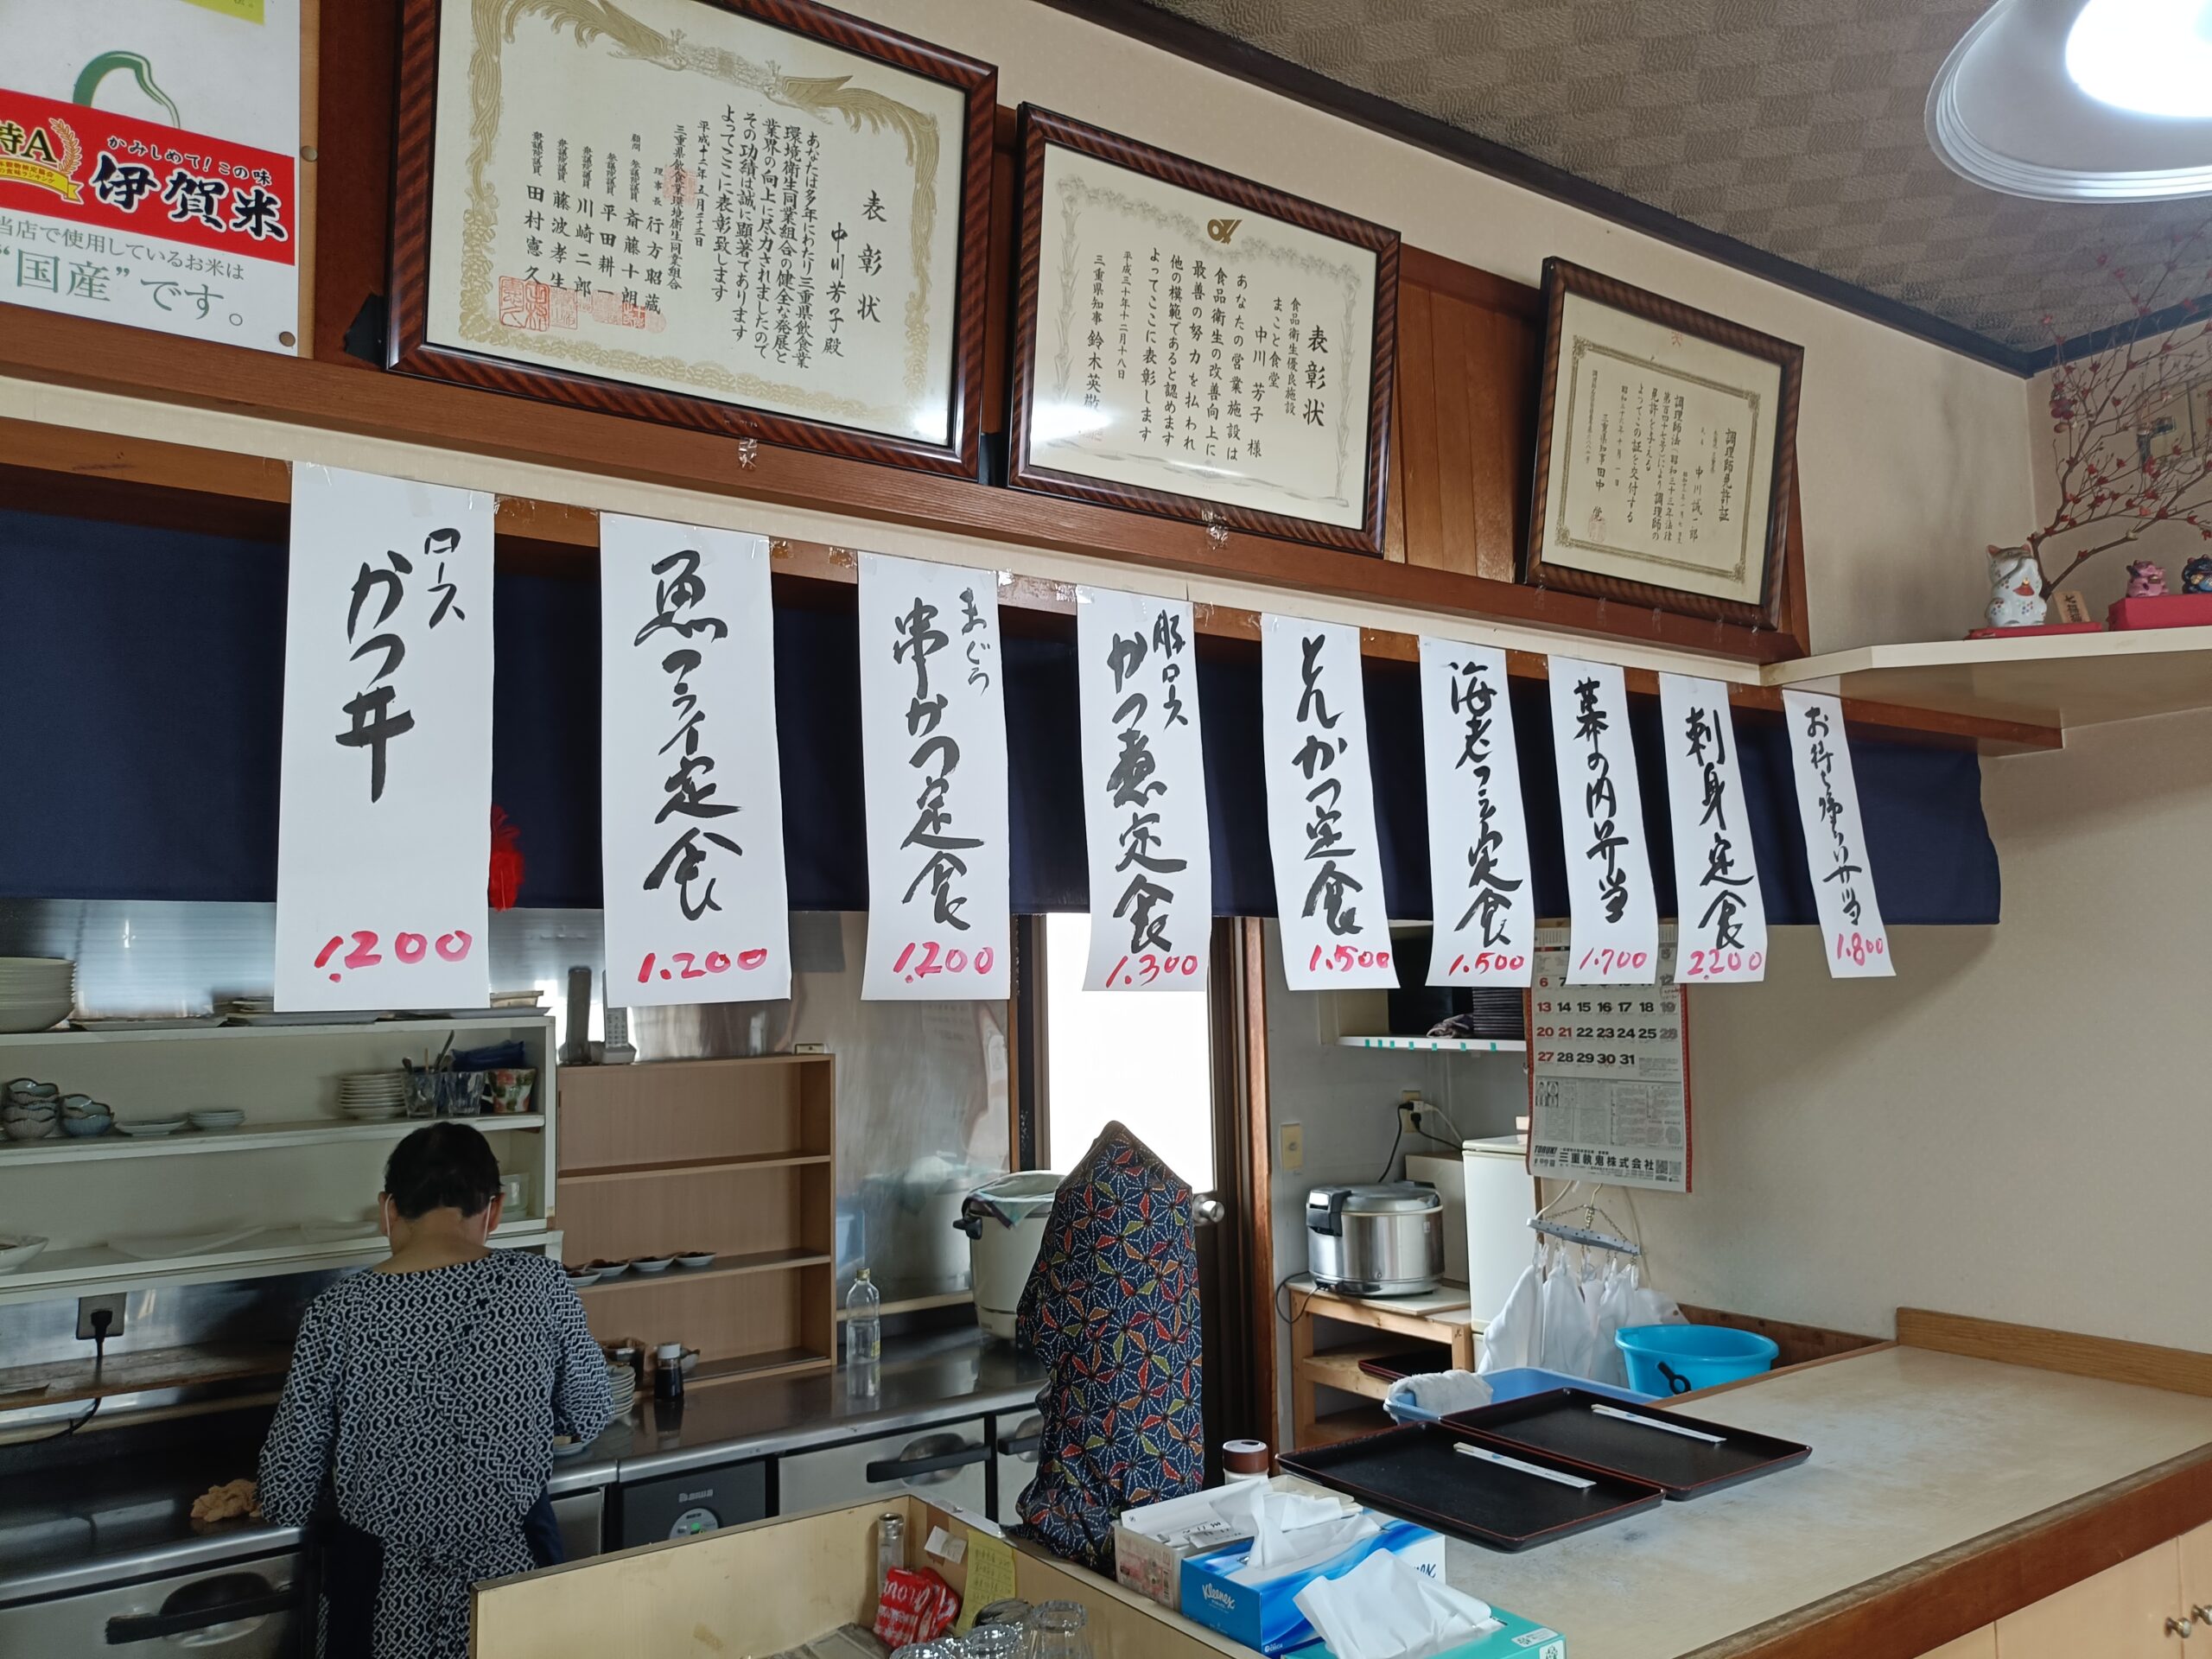 特A
かみしめて!この味
伊賀米
当店で使用しているお米は
“国産”です。
表彰状
中川芳子殿
あなたは多年にわたり三重県飲食業
環境衛生同業組合の健全な発展と
業界の向上に尽力されましたので
その功績は誠に顕著であります
よってここに表彰致します
平成十二年五月二十三日
三重県飲食業環境衛生同業組合
理事長 行方昭蔵
顧問 参議院議員 斎藤十朗
参議院議員 平田耕一
衆議院議員 川崎二郎
衆議院議員 藤波孝生
衆議院議員 田村憲久
表彰状
食品衛生優良施設
まこと食堂
中川芳子様
あなたの営業施設は
食品衛生の改善向上に
最善の努力を払われ
他の模範であると認めます
よってここに表彰します
平成三十年十二月十八日
三重県知事 鈴木英敬
調理師免許証
中川誠一郎
調理師法(昭和三十三年法律
第百四十七号)により調理師の
免許を与える
よってこの証を交付する
三重県知事田中覚
ロース
かつ丼
1.200
魚フライ定食
1.200
まぐろ
串かつ定食
1.200
豚ロース
かつ煮定食
1.300
とんかつ定食
1.500
海老フライ定食
1.500
幕の内弁当
1.700
刺身定食
2.200
お持ち帰り弁当
1.800
6
13 14 15 16 17 18 19
20 21 22 23 24 25 26
27 28 29 30 31
三重執鬼株式会社
Kleenex